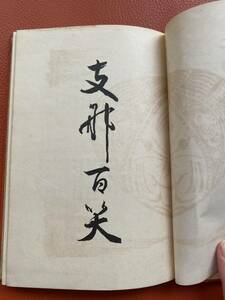 支那百笑